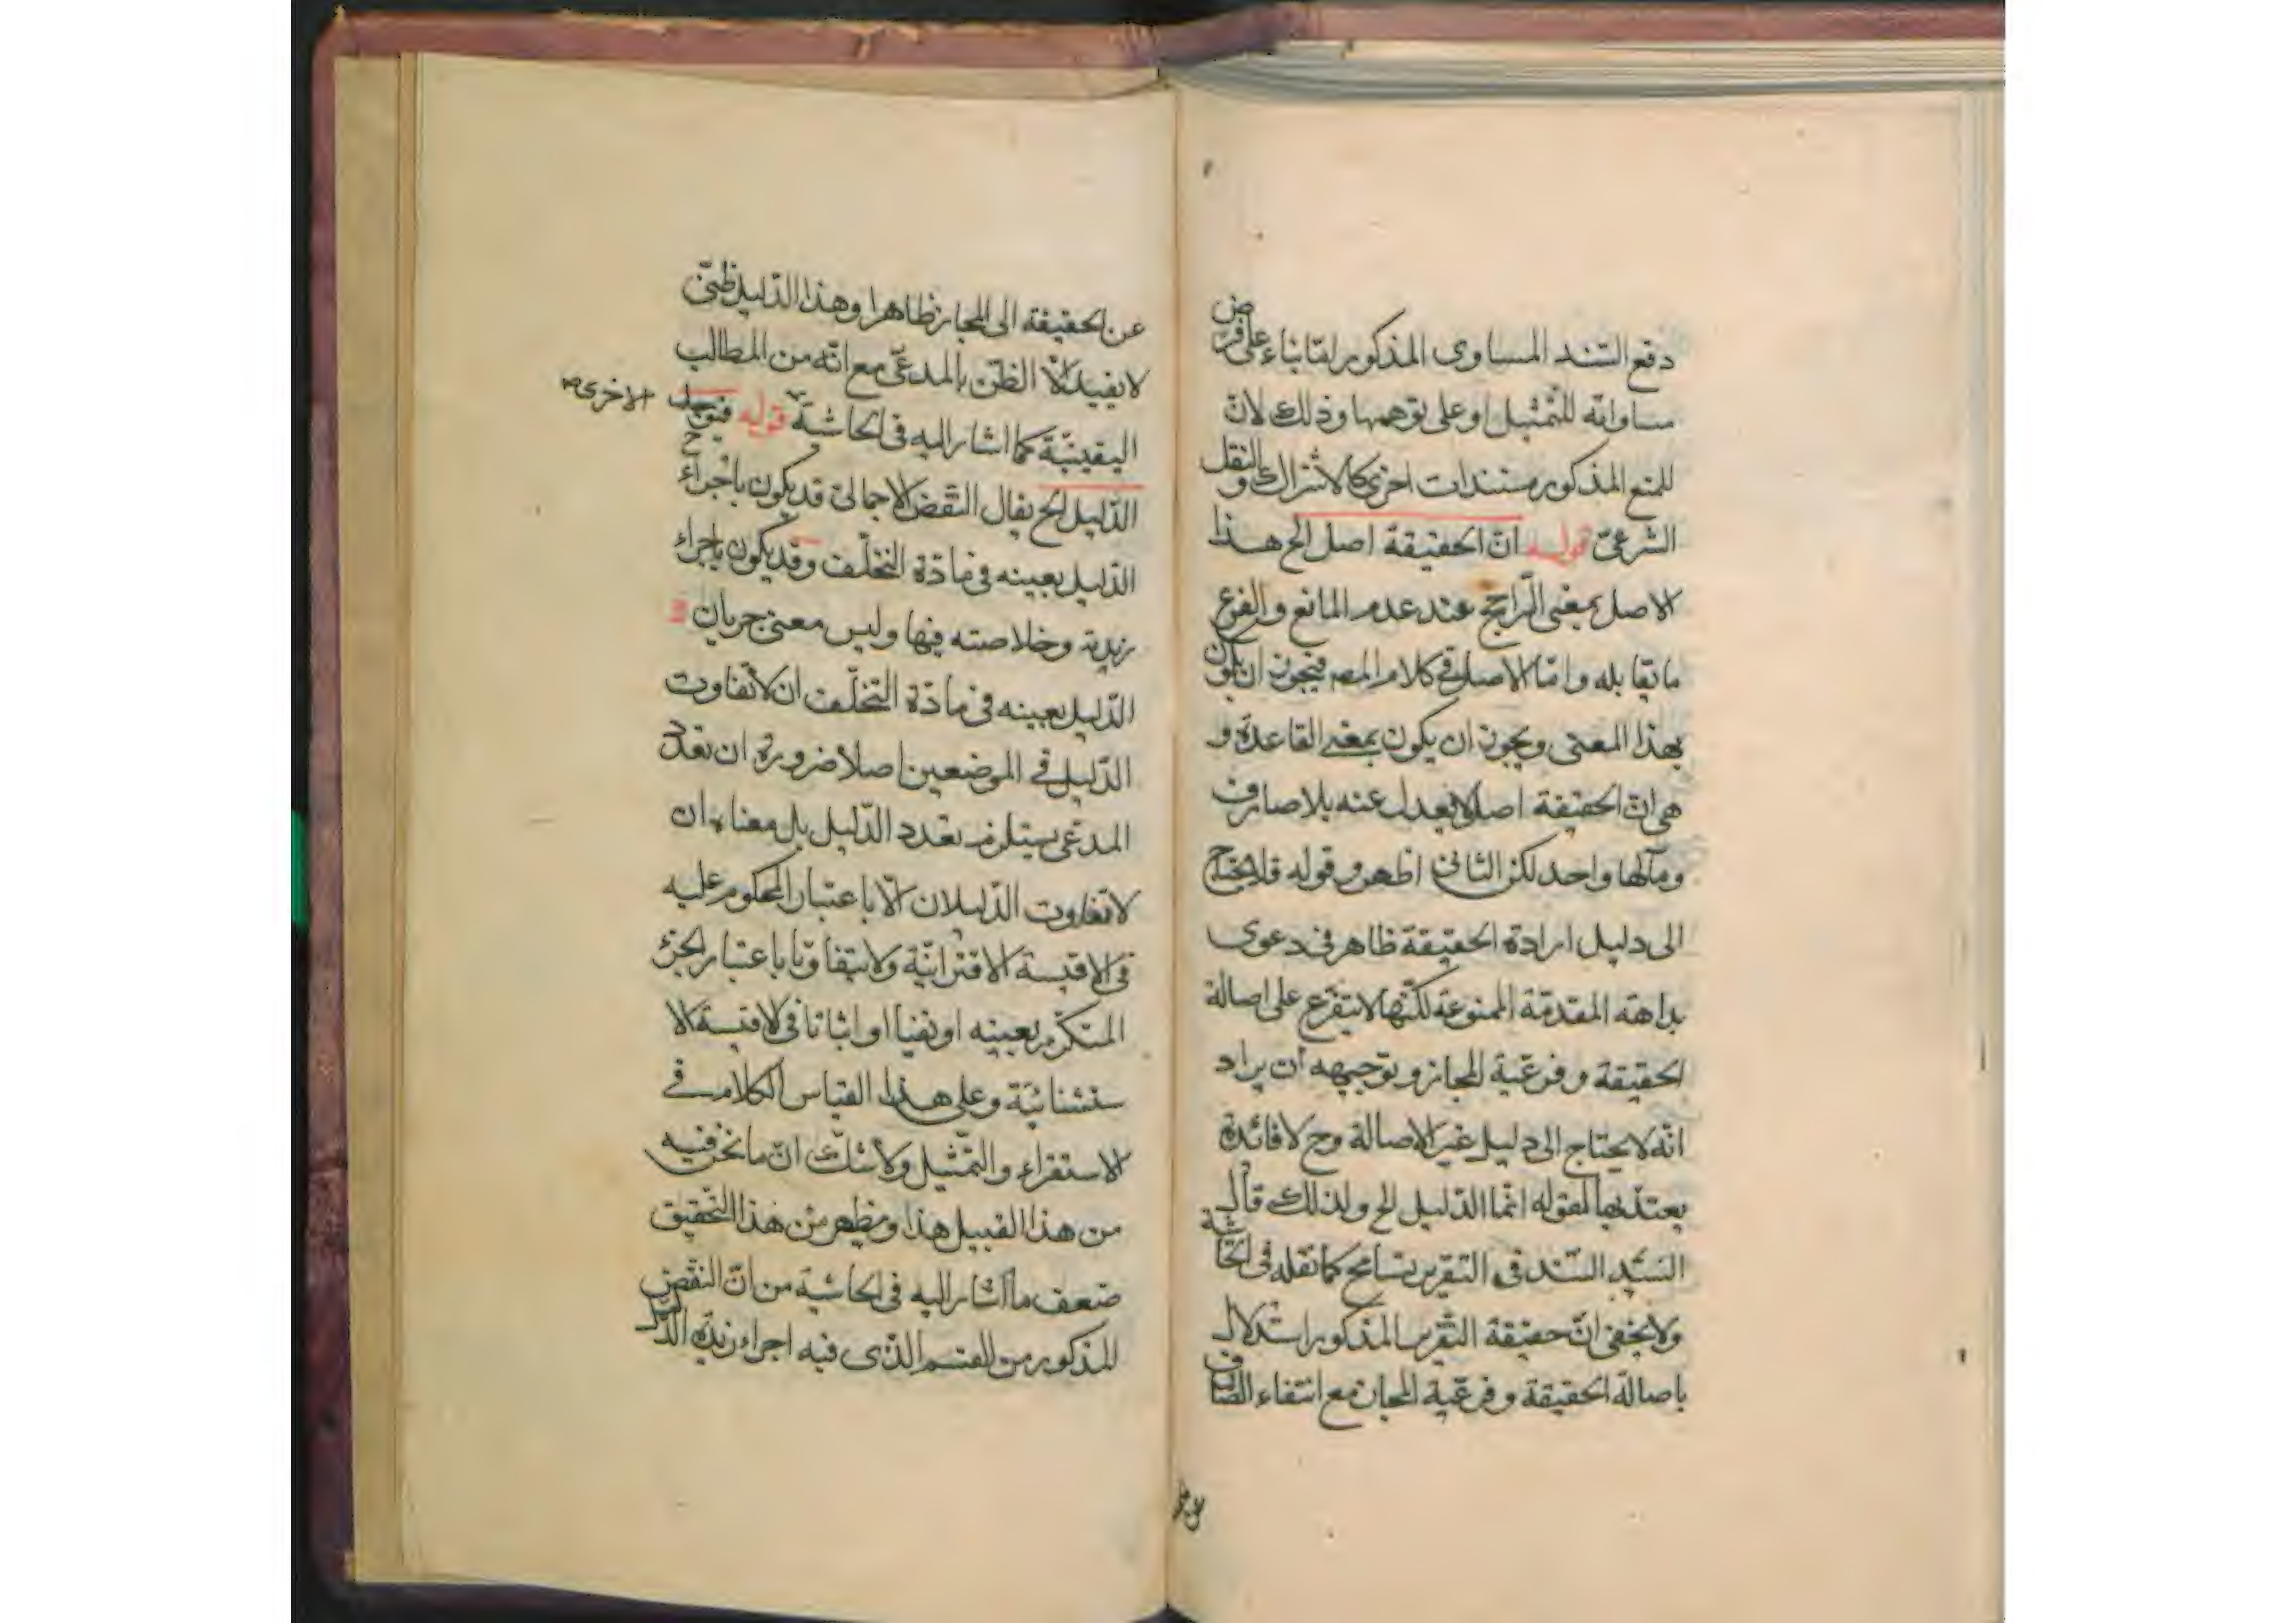 دفع السّند المساوى المذكور امّا بناء على فرض
مساواته للتّمثيل او على توهمها وذلك لانّ
للمنع المذكور مستندات اخرى كالاشتراك والنقل
الشرعىّ قوله انّ الحقيقة اصل الخ هذا
الاصل بمعنى الرّاجح عند عدم المانع والفرع
ما تقابله وامّا الاصل فى كلام المصـ فيجوز ان يكون
بهذا المعنى ويجوز ان يكون بمعنى القاعدة و
هى انّ الحقيقة اصل لا يعدل عنه بلا صارف
ومآلها واحد لكن الثانى اظهر وقوله فلا يحتاج
الى دليل ارادة الحقيقة ظاهر فى دعوى
بداهة المقدمّة الممنوعة لكنّها لا يتفرّع على اصالة
الحقيقة وفرعيّة المجاز وتوجيهه ان يراد
انّه لا يحتاج الى دليل غير الاصالة وح لا فائدة
يعتدّ بها لقوله انّما الدّليل الخ ولذلك قال
السّيّد السّند فى التقرير تسامح كما نقله فى الحاشية
ولا يخفى انّ حقيقة التّقرير المذكور استدلال
باصالة الحقيقة وفرعيّة المجاز مع انتفاء الصّارف
عن الحقيقة الى المجاز ظاهرا وهذا الدّليل ظنىّ
لا يفيد الّا الظنّ بالمدعّى مع انّه من المطالب
اليقينيّة كما اشار اليه فى الحاشية قوله الاخرى
الدّليل الخ يقال النّقض الاجمالى قد يكون باجراء
الدّليل بعينه فى مادّة التخلّف وقد يكون باجراء
زبدته وخلاصته فيها وليس معنى جريان
الدّليل بعينه فى مادّة التّخلّف ان لا تفاوت
الدّليل فى الموضعين اصلا ضرورة ان تعدّد
المدعّى يستلزم تعدد الدّليل بل معناه ان
لا تفاوت الدّليلان الّا باعتبار المحكوم عليه
فى الاقيسة الاقترانيّة ولا يتفاوتا باعتبار الجزء
المتكرّر بعينه او نفيا او اثباتا فى الاقيسة الا
ستثنائيّة وعلى هذا القياس الكلام فى
الاستقراء والتّمثيل ولا شكّ انّ ما نحن فيه
من هذا القبيل هذا ويظهر من هذا التّحقيق
ضعف ما اشار اليه فى الحاشية من انّ النقض
المذكور من القسم الذّى فيه اجراء زبدة الدّليل